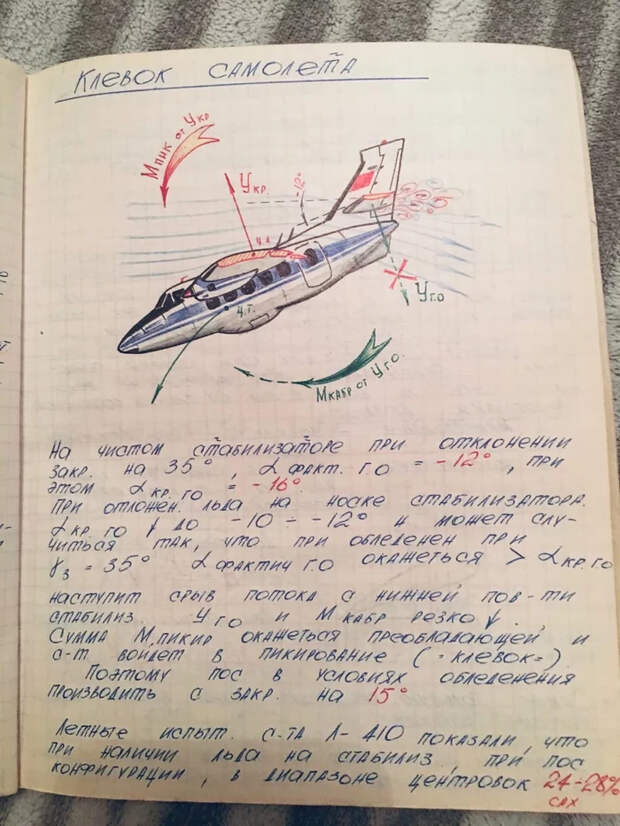 КЛЕВОК САМОЛЕТА
М пик от Укр
Укр.
-12°
ц.д.
ц.т.
Уг.о
Мкабр от Уг.о.
На чистом стабилизаторе при отклонении
закр. на 35°, α факт. г.о = -12°, при
этом α кр. г.о = -16°
При отложен. льда на носке стабилизатора.
α кр. г.о ↓ до -10 ÷ -12° и может слу-
читься так, что при обледенен. при
γз = 35° α фактич г.о окажеться > α кр. г.о
наступит срыв потока с нижней пов-ти
стабилиз. У г.о и М кабр резко ↓.
Сумма М.пикир окажеться преобладающей и
с-т войдет в пикирование (-клевок-)
Поэтому пос в условиях обледенения
производить с закр. на 15°
Летные испыт. с-та Л-410 показали, что
при наличии льда на стабилиз, при пос
конфигурации, в диапазоне центровок 24-28%
сах